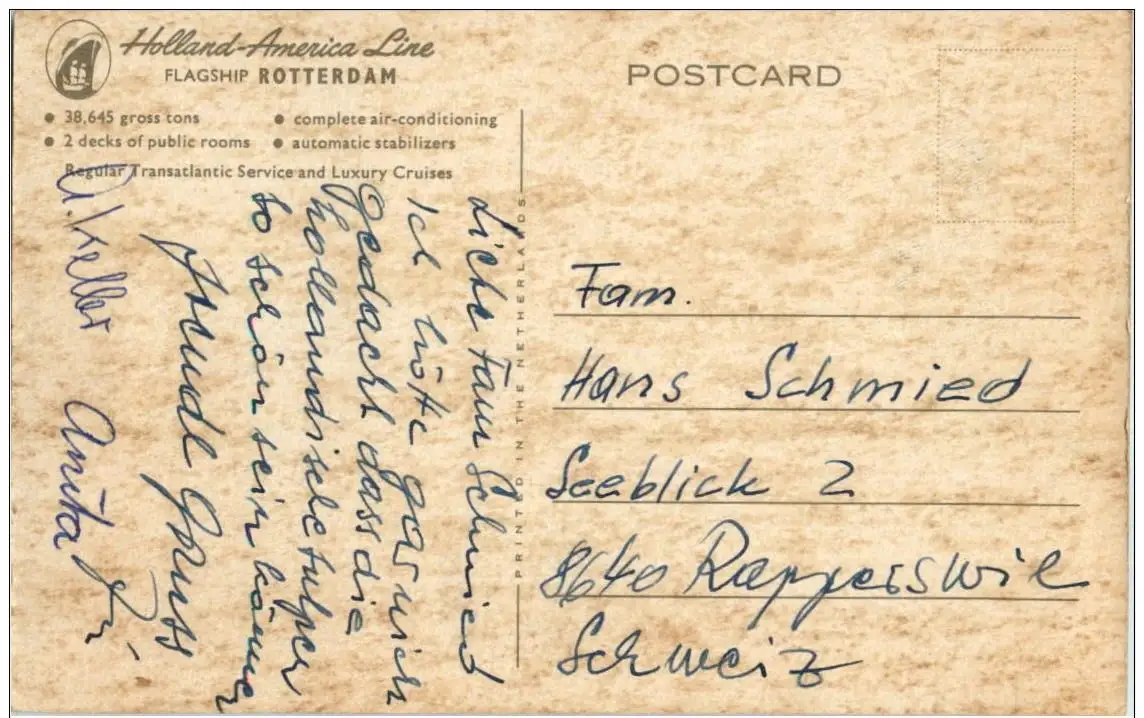 Holland-America Line
FLAGSHIP ROTTERDAM
• 38,645 gross tons
• complete air-conditioning
• 2 decks of public rooms
• automatic stabilizers
Regular Transatlantic Service and Luxury Cruises
POSTCARD
PRINTED IN THE NETHERLANDS
Liebe Fam Schmied
Ich hätte gar nich
gedacht dass die
holländische tulpen
so schön sein können
Gruss
Anita
Fam.
Hans Schmied
Seeblick 2
8640 Rapperswil
Schweiz